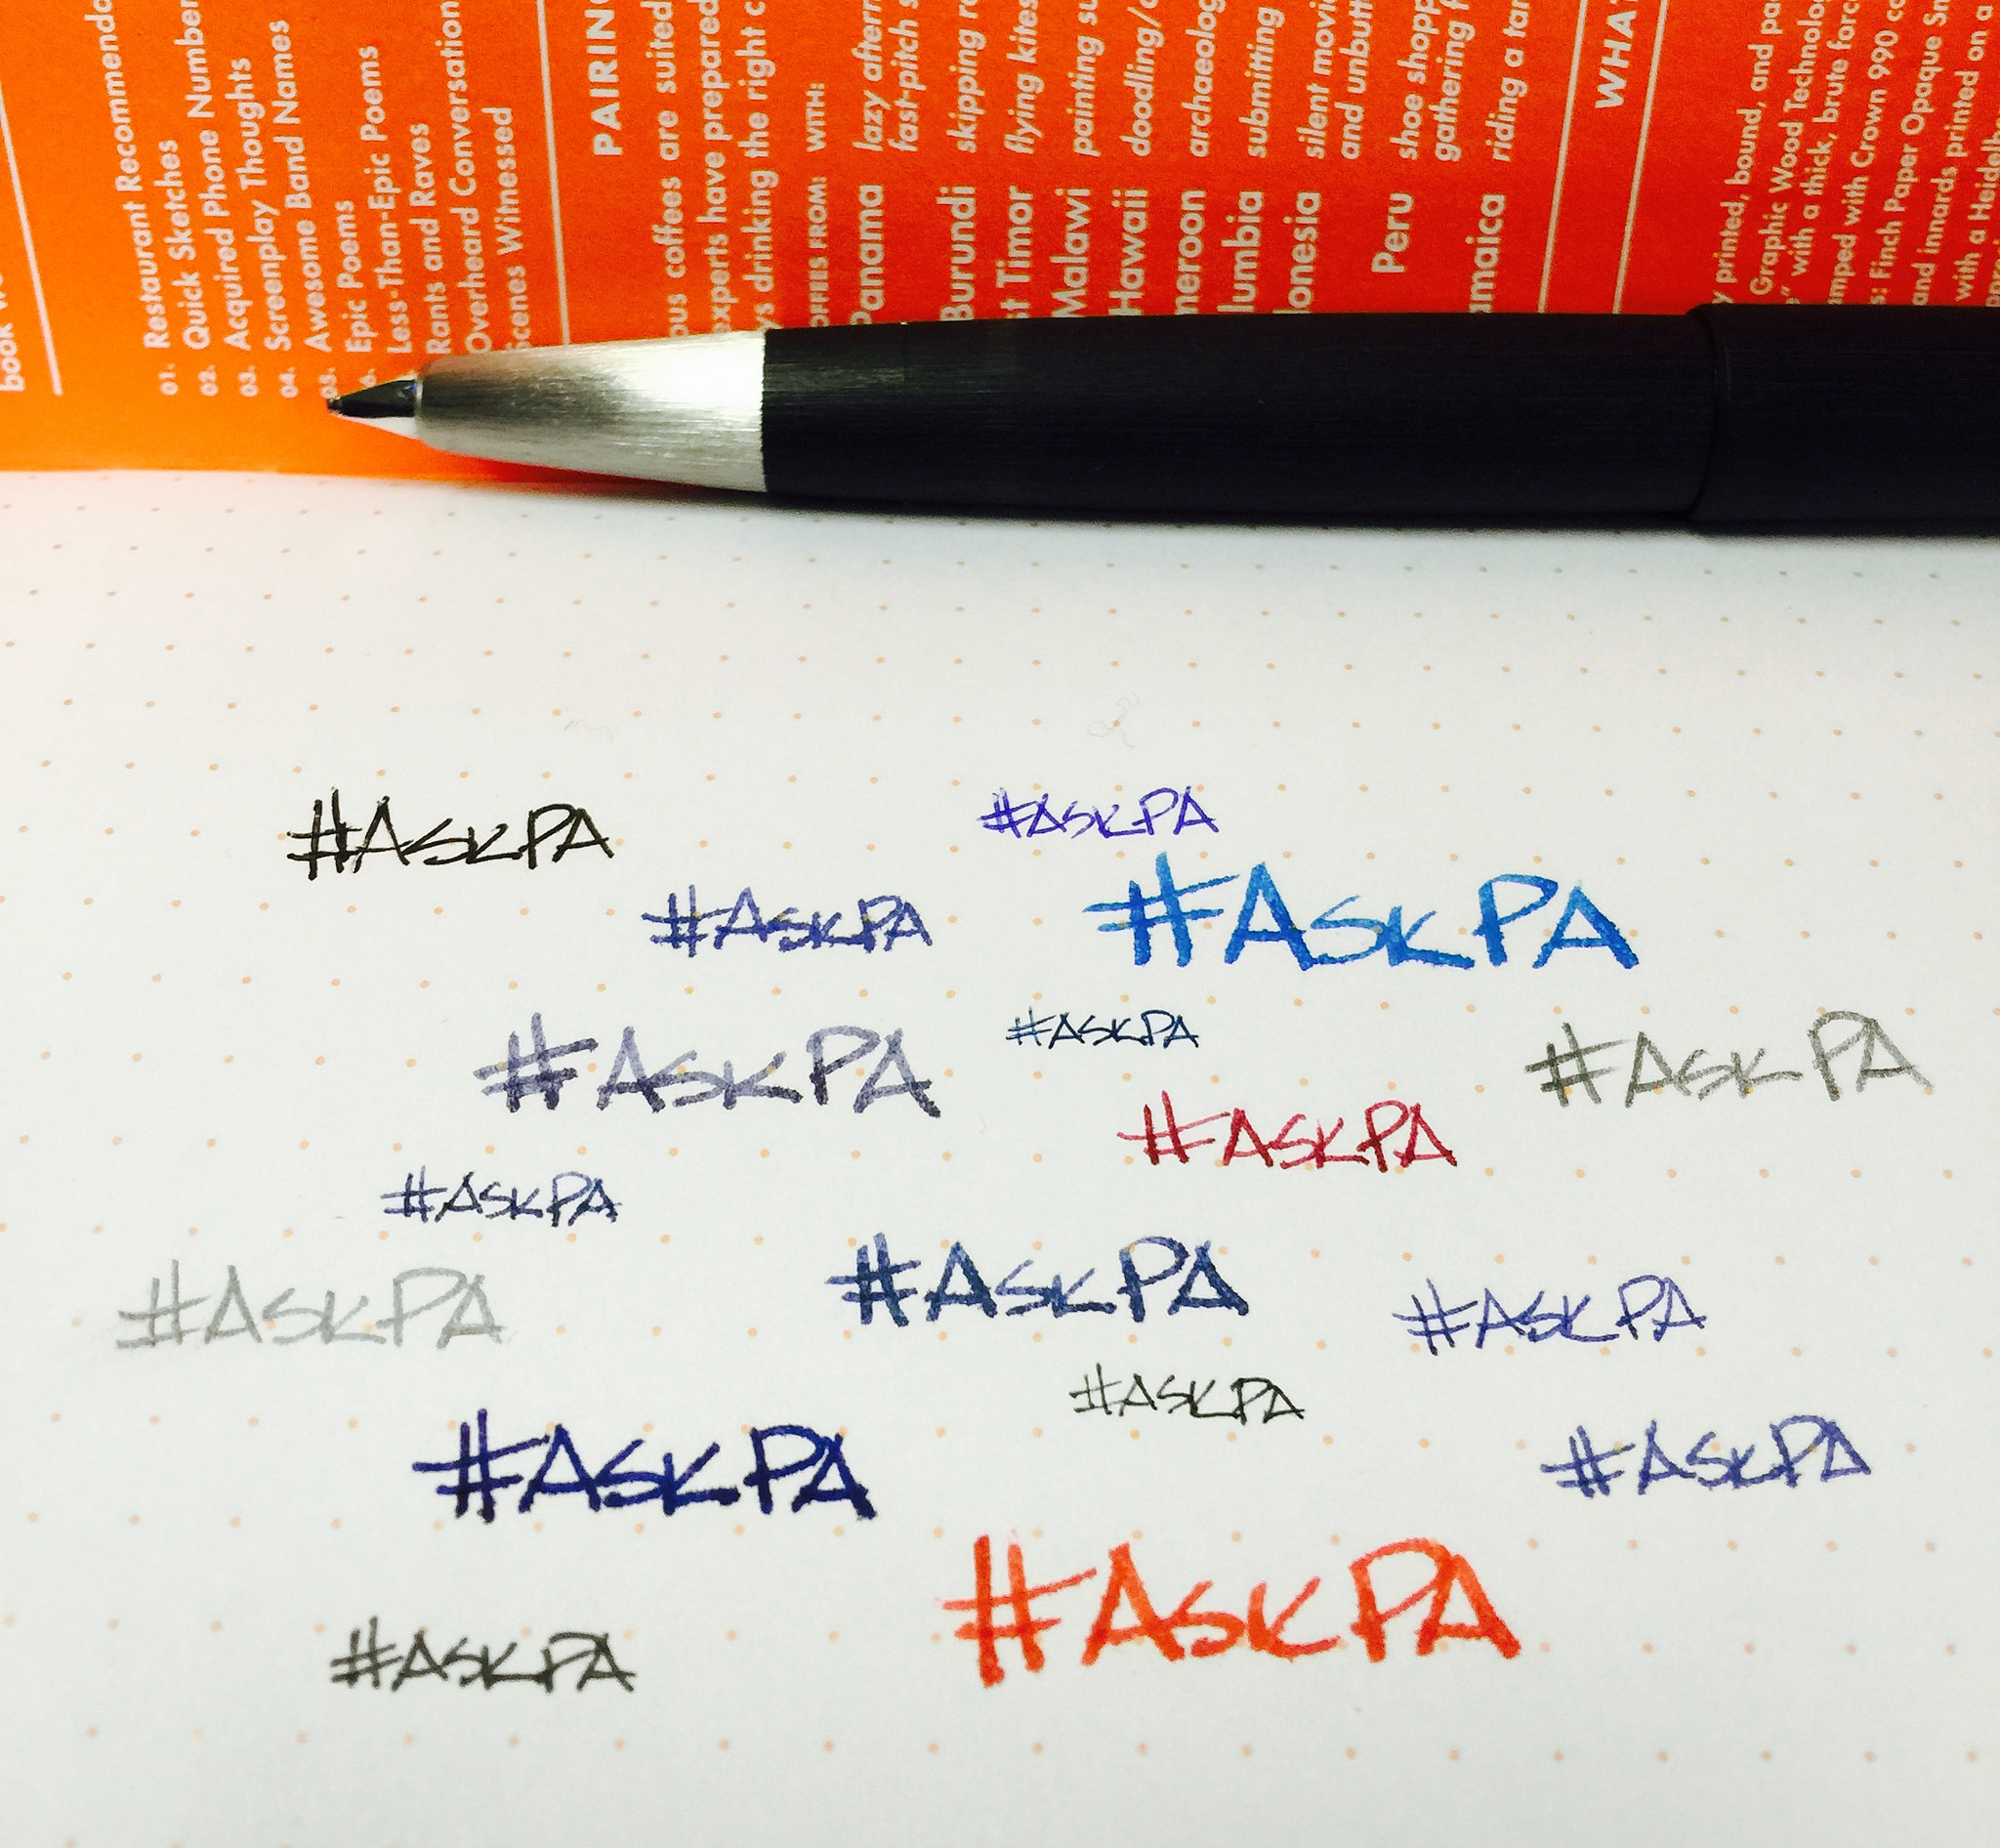 book
Restaurant Recommenda
01. Quick Sketches
02. Acquired Phone Number
03. Screenplay Thoughts
04. Awesome Band Names
05. Epic Poems
6. Less-Than-Epic Poems
Rants and Raves
Overheard Conversation
Scenes Witnessed
PAIRIN
ous coffees are suited
experts have prepared
ys drinking the right c
OFFEES FROM: WITH:
Panama lazy aftern
fast-pitch s
Burundi skipping r
st Timor flying kites
Malawi painting su
Hawaii doodling/
meroon archaeolog
lumbia submitting
donesia silent movi
and unbutt
Peru shoe shopp
gathering f
amaica riding a tan
WHAT
y printed, bound, and pa
Graphic Wood Technolog
e" with a thick, brute forc
amped with Crown 990 co
s: Finch Paper Opaque Sm
and innards printed on a
with a Heidelbe
#ASKPA
#ASKPA
#ASKPA
#ASKPA
#ASKPA
#ASKPA
#ASKPA
#ASKPA
#ASKPA
#ASKPA
#ASKPA
#ASKPA
#ASKPA
#ASKPA
#ASKPA
#ASKPA
#ASKPA